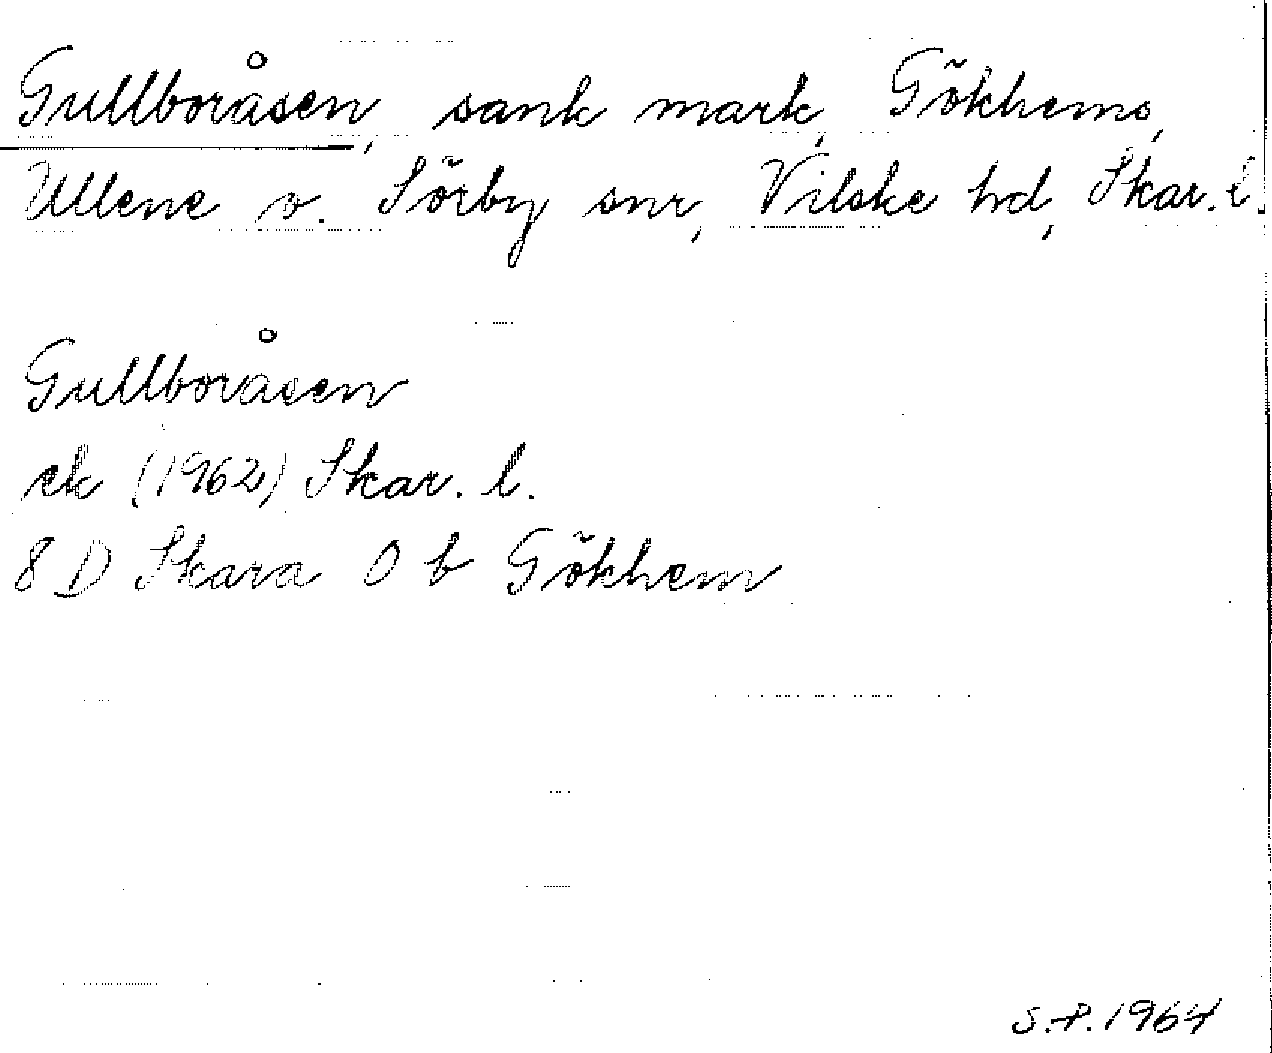 Gullboråsen, sank mark, Gökhems,
Ullene o. Sörby snr, Vilske hd, Skar. l.
Gullboråsen
ek (1962) Skar. l.
8 D Skara 0 b Gökhem
S.P. 1964